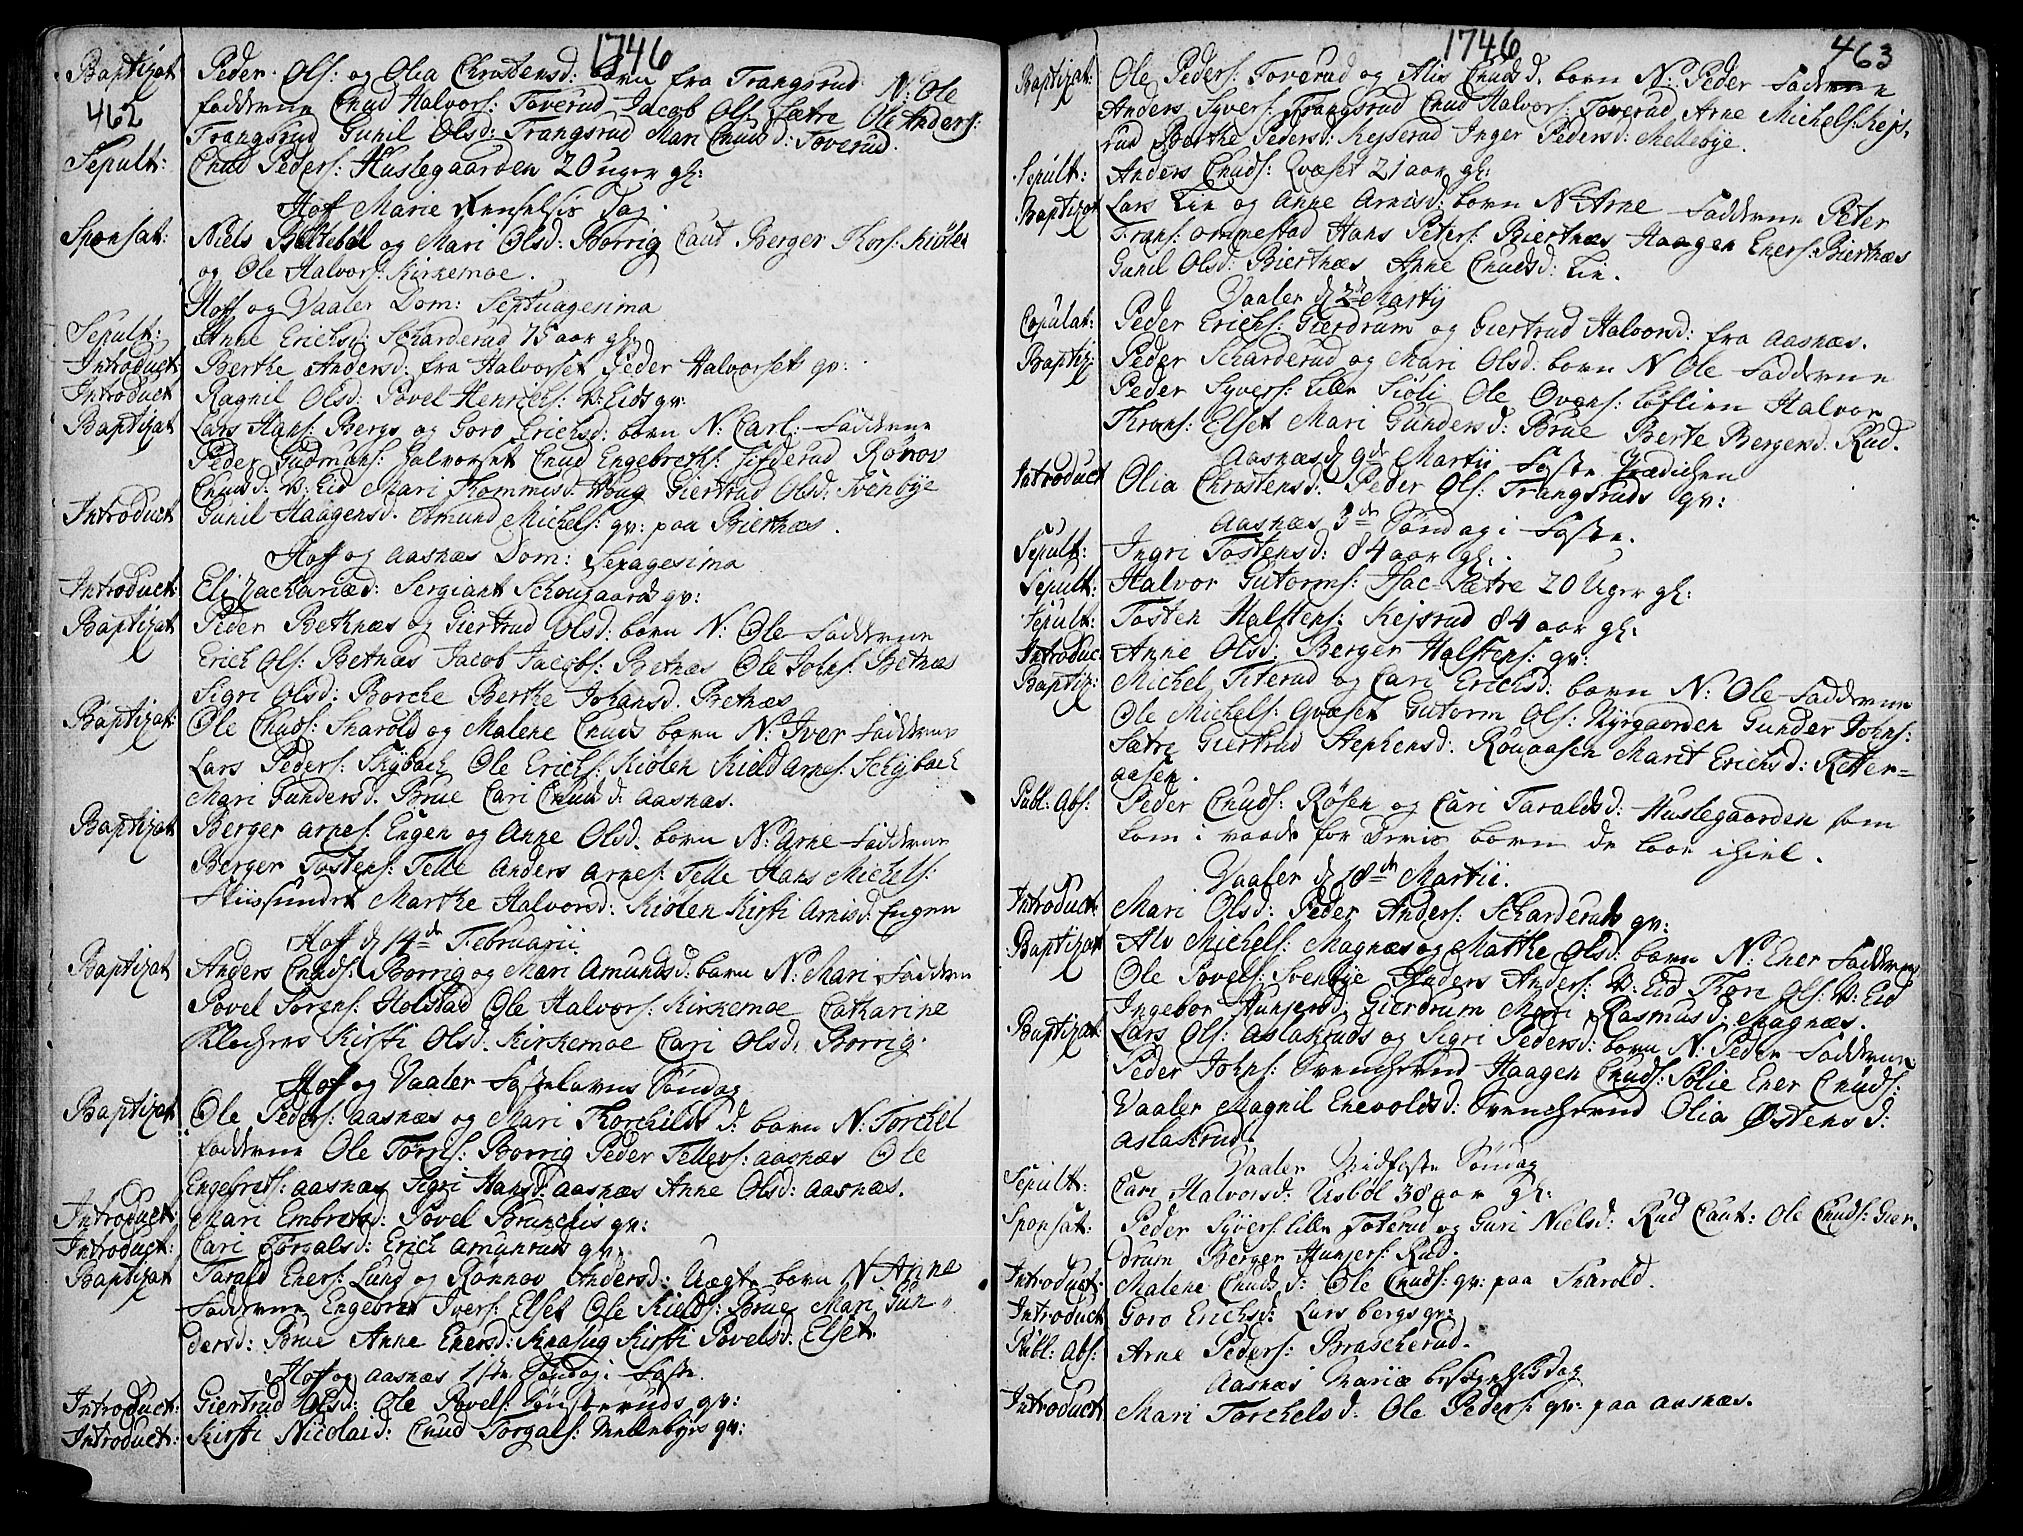 1746
Baptizat Peder Ols: og Olia Christensd: barn fra Trangsrud N: Ole
462 fadderne Cnud Halvors: Toverud Jacob Ols: Sætre Ole Anders:
Trangsrud Gunil Olsd: Trangsrud Mari Cnudsd: Toverud.
Sepult: Cnud Peders: Hustegaarden 20 uger gl:
Hoff Marie Renselsis Dag.
Sponsat: Niels Beltebøl og Mari Olsd: Borrig Caut Berger Thors: Kiølen
og Ole Halvors: Kirkemoe.
Hoff og Vaaler Dom: Septuagesima
Sepult: Anne Ericksd: Scharderud 75 aar gl:
Introduct Berthe Andersd: fra Halvorset Peder Halvorset qv:
Introduct Ragnil Olsd: Povel Henrichs: V: Eids qv:
Baptizat Lars Hans: Bergs og Goro Erichsd: barn N: Carl Fadderne
Peder Gudmuns: Halvorset Cnud Engebreths: Rønov
Cnudsd: V: Eid Mari Thommisd: Houg Giertrud Olsd: Svenbye
Introduct Gunil Haagensd. Amund Michels: qv: paa Biertnæs.
Hoff og Aasnæs Dom: Sexagesima
Introduct: Eli Zachariæd: Sergiant Schougaards qv:
Baptizat Peder Betknæs og Giertrud Olsd: barn N: Ole Fadderne
Erich Ols: Betnæs Jacob Jacobs: Betnæs Ole Johs: Betnæs
Sigri Olsd: Borche Berthe Johansd. Betnæs
Baptizat: Ole Cnuds: Skarold og Malene Cnuds barn N: Iver Fadderne
Lars Peders: Skybach Ole Erichs: Kiølen Kield Arnes: Schybach
Mari Gundersd. Brue Cari Cnudsd: Aasnæs.
Baptizat Berger Arnes: Engen og Anne Olsd. barn N: Arne Fadderne
Berger Tostens: Telle Anders Arnes: Telle Hans Michels:
Marthe Halvorsd: Kiølen Kirsti Arnisd: Engen
Hoff d 14de Februarii
Baptizat Anders Cnuds: Borrig og Mari Amundsd: barn N: Mari Faddern
Povel Sørens: Holstad Ole Halvors: Kirkemoe Catharine
Kirsti Olsd. Kirkemoe Cari Olsd: Borrig.
Hof og Vaaler Fastelavns Søndag
Baptizat Ole Peders: Aasnæs og Mari Thorchilds d: barn N: Torchel
fadderne Ole Torcls: Borrig Peder Tellevs: Aasnæs Ole
Engebrets: Aasnæs Sigri Hansd: Aasnæs Anne Olsd: Aasnæs.
Introduct: Mari Embretsd: Povel qv:
Introduct: Cari Torgalsd: Erich Amunruds qv:
Baptizat Tarald Eners: Lund og Rønnov Andersd: Uægte barn N Anne
Fadderne Engebret Ivers: Elset Ole Kields: Brue Mari Gun-
dersd: Brue Anne Enersd: Knasug Kirsti Povelsd. Elset.
Hof og Aasnæs 1ste Søndag i Faste.
Introduct: Giertrud Olsd: Ole Povels: qv:
Introduct: Kirsti Nicolaid: Cnud Torgals: Mellebyis qv:
1746 463
Baptizat: Ole Peders: Toverud og Alis Cnudsd. barn N: Peder Fadderne
Anders Syvers: Trangsrud Cnud Halvors: Toverud Arne Michels: Kejs-
rud Berthe Pedersd: Kejserud Inger Pedersd: Mellebye.
Sepult: Anders Cnuds: Qvæset 21 aar gl:
Baptizat Lars Lie og Anne Arnisd: barn N: Arne Fadderne Peter
Frans: Ommestad Hans Peters: Biertnæs Haagen Eners: Biertnæs
Gunil Olsd: Biertnæs Anne Cnudsd: Lie.
Vaaler d 2den Martij
Copulat: Peder Erichs: Gierdrum og Giertrud Halvorsd: fra Aasnæs.
Baptiz: Peder Scharderud og Mari Olsd: barn N Ole Fadderne
Peder Syvers: Lille Siøli Ole Ovens: Løflien Halvor
Throns: Elset Mari Gundersd: Brue Berte Bergersd: Rud.
Aasnæs d 9de Martii Faste Prædichen
Introduct Olia Christensd: Peder Ols: Trangsruds qv:
Aasnæs 3de Søndag i Faste.
Sepult: Ingri Tostensd: 84 aar gl:
Sepult: Halvor Gutorms: Sætre 20 Uger gl:
Sepult: Tosten Halstens: Kejsrud 84 aar gl:
Introduc: Anne Olsd: Berger Halstens: qv:
Baptiz: Michel Titerud og Cari Erichsd: barn N: Ole Fadderne
Ole Michels: Qvæset Gutorm Ols: Nyrgaarden Gunder Johs:
Sætre Giertrud Stephensd: Rouaasen Maret Erichsd: Retter-
aasen.
Publ: Abs: Peder Cnuds: Røsen og Cari Taraldsd: Hustegaarden som
kom i vaade for Deris barn de laae ihiel.
Vaaler d 18de Martii.
Introduct Mari Olsd: Peder Anders: Scharderuds qv:
Baptizat Alv Michels: Magnæs og Marthe Olsd: barn N: Ener Fadderne
Ole Povels: Svenbye Anders Anders: V: Eid Thore Ols: V: Eid
Ingebor Gierdrum Mari Rasmusd: Magnæs.
Baptizat Lars Ols: Aslakruds og Sigri Pedersd: barn N: Peder Fadderne
Peder Johs: Svencherud Haagen Cnuds: Sølie Ener Cnuds:
Vaaler Magnil Enevoldsd: Svencherud Olia Østensd:
Aslakrud.
Vaaler Midfaste Søndag
Sepult: Cari Halvorsd: Risbøl 38 aar gl:
Sponsat: Peder Syvers: lille Toterud og Guri Nielsd: Rud Caut: Ole Cnuds: Gier-
drum Berger Rud.
Introduct: Malene Cnudsd: Ole Cnuds: qv: paa Skarold.
Introduct Goro Erichsd: Lars Bergs qv:
Publ: Abs: Arne Peders: Brascherud.
Aasnæs Mariæ besøgnelsis dag
Introduct Mari Torchelsd: Ole Peders: qv: paa Aasnæs.